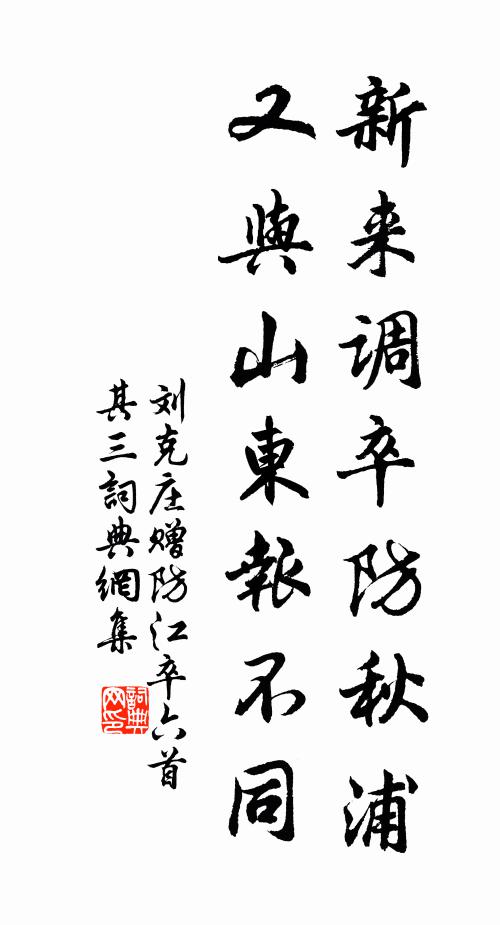 新来调卒防秋浦
又與山東報不同
刘克庄赠防江卒六首
其三詞典網集
詞典网印